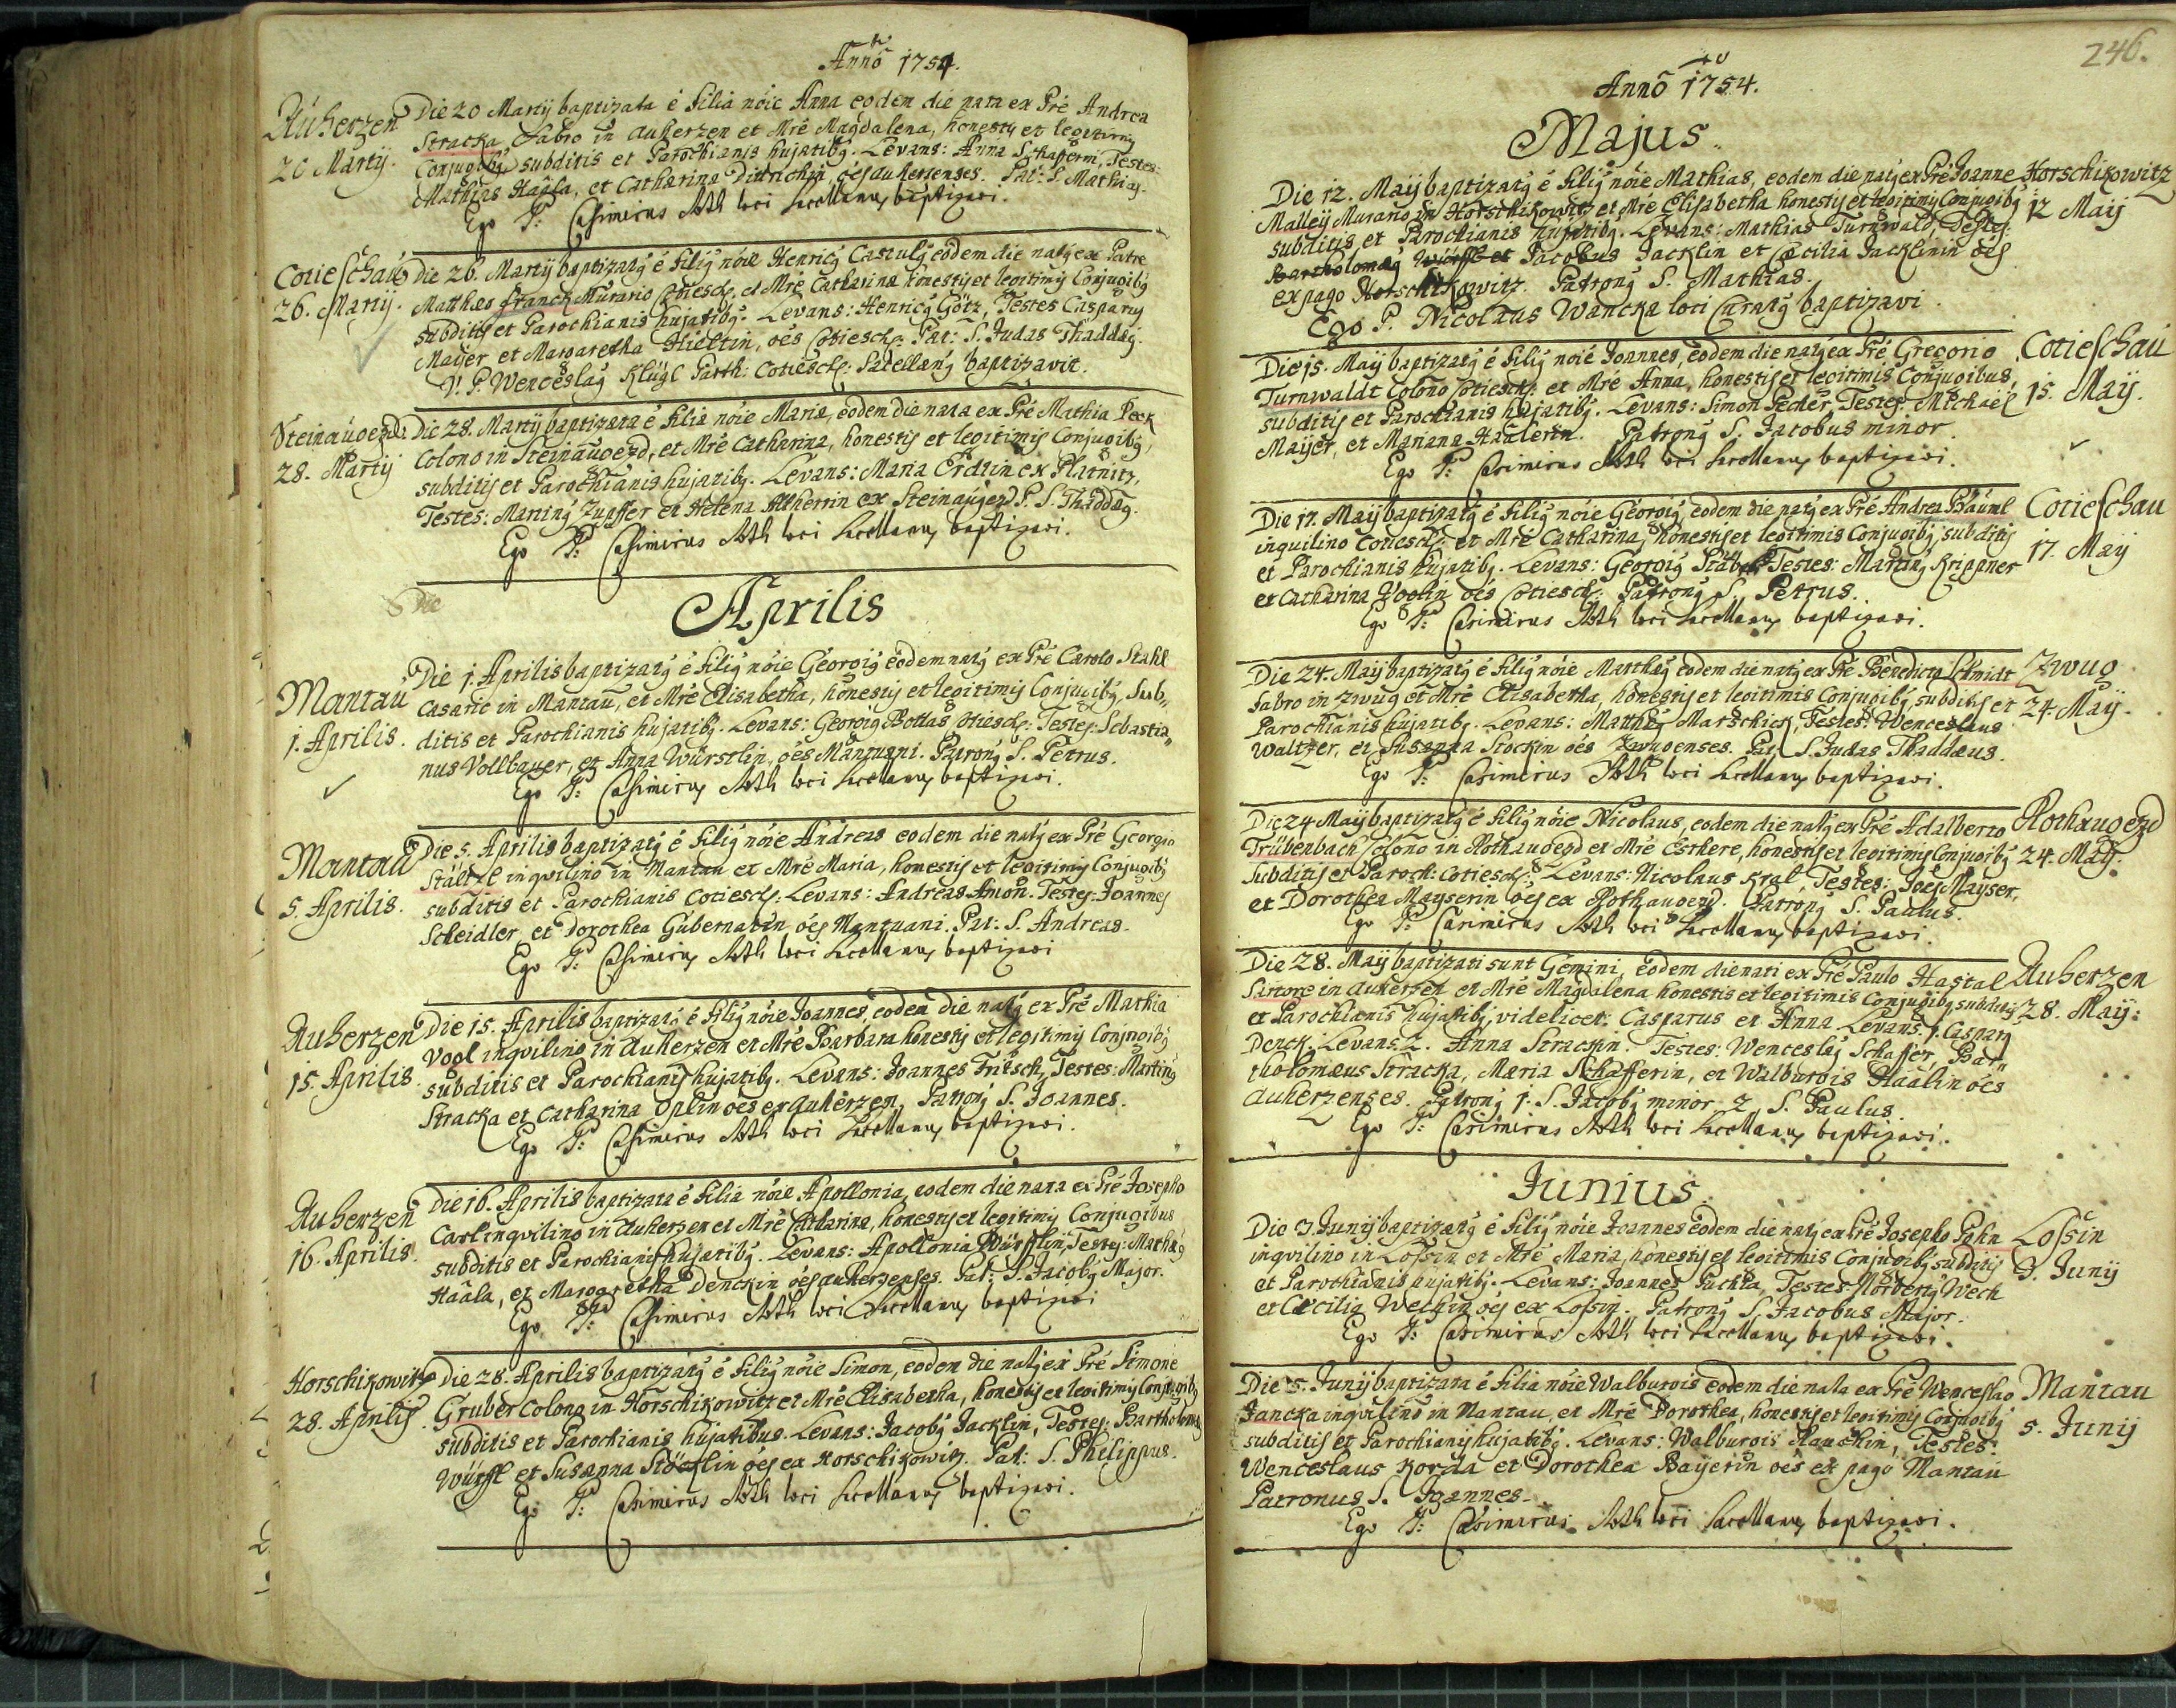 Anno 1754.
Auherzen
20 Martij.
Die 20 Martij baptizata ē filia nōie Anna eodem die nata ex Pr̄e Andrea
Stracka, Fabro in Auherzen et Mr̄e Magdalena, honestis et legitimis
Conjugibꝰ subditis et Parochianis hujatibꝰ. Levans: Anna Schafferin, Testes:
Mathias Haala, et Catharina Dittrichin, oēs Auhersenses. Pat: S. Mathias.
Ego P: Casimirus Roth loci Sacellanus baptizavi.
Cotieschau
26. Martij.
Die 26. Martij baptizatꝰ ē filiꝰ nōie Henricꝰ Casculꝰ eodem die natꝰ ex Patre
Matthæo Franck Murario Cotiesch. et Mr̄e Catharina honestis et legitimis Conjugibꝰ
subditis et Parochianis hujatibꝰ. Levans: Henricꝰ Götz, Testes Casparꝰ
Maÿer et Margaretha Hieltin, oēs Cotiesch: Pat: S. Judas Thaddæꝰ.
V. P. Wenceslaꝰ Klügl Parth: Cotiesch: Sacellanꝰ baptizavit.
Steinaugezd.
28. Martij
Die 28. Martij baptizata ē filia nōie Maria, eodem die nata ex Pr̄e Mathia Peck
Colono in Steinaugezd, et Mr̄e Catharina, honestis et legitimis Conjugibꝰ,
subditis et Parochianis hujatibꝰ. Levans: Maria Erdtin ex Platnitz,
Testes: Martinꝰ Zupffer et Helena Alherrin ex Steinaugezd. P. S. Thaddæꝰ.
Ego P: Casimirus Roth loci Sacellanus baptizavi.
Die
Aprilis
Mantau
1. Aprilis.
Die 1. Aprilis baptizatꝰ ē filiꝰ nōie Georgiꝰ eodem natꝰ ex Pr̄e Carolo Stahl
Casario in Mantau, et Mr̄e Elisabetha, honestis et legitimis Conjugibꝰ, Sub„
ditis et Parochianis hujatibꝰ. Levans: Georgiꝰ Bottas Cotiesch: Testes: Sebastia„
nus Vollbauer, et Anna Würstlin, oēs Mantuani. Patronꝰ S. Petrus.
Ego P: Casimirus Roth loci Sacellanus baptizavi.
Mantau
5. Aprilis.
Die 5. Aprilis baptizatꝰ ē filiꝰ nōie Andreas eodem die natꝰ ex Pr̄e Georgio
Stältzl inqvilino in Mantau et Mr̄e Maria, honestis et legitimis Conjugibꝰ
subditis et Parochianis Cotiesch: Levans: Andreas Amon. Testes: Joannes
Scheidler, et Dorothea Gubernatin, oēs Mantuani. Pat: S. Andreas.
Ego P: Casimirus Roth loci Sacellanus baptizavi
Auherzen
15. Aprilis.
Die 15. Aprilis baptizatꝰ ē filiꝰ nōie Joannes, eodem die natꝰ ex Pr̄e Mathia
Vogl inqvilino in Auherzen et Mr̄e Barbara honestis et legitimis Conjugibꝰ
subditis et Parochianis hujatibꝰ. Levans: Joannes Fritsch, Testes: Martinꝰ
Stracka et Catharina Oplin oēs ex Auherzen. Patronꝰ S. Joannes.
Ego P: Casimirus Roth loci Sacellanus baptizavi.
Auherzen
16. Aprilis.
Die 16. Aprilis baptizata ē filia nōie Apollonia, eodem die nata ex Pr̄e Josepho
Carl inqvilino in Auherzen et Mr̄e Catharina, honestis et legitimis Conjugibus
subditis et Parochianis hujatibꝰ. Levans: Apollonia Würfflin, Testes: Mathæꝰ
Haala, et Margaretha Denckin oēs Auherzenses. Pat: S. Jacobꝰ Major.
Ego P: Casimirus Roth loci Sacellanus baptizavi
Horschikowitz
28. Aprilis.
Die 28. Aprilis baptizatꝰ ē filiꝰ nōie Simon, eodem die natꝰ ex Pr̄e Simone
Gruber Colono in Horschikowitz et Mr̄e Elisabetha, honestis et legitimis Conjugibꝰ
subditis et Parochianis hujatibus. Levans: Jacobꝰ Jacklin, Testes: Bartholomæꝰ
Würffl et Susanna Stöcklin oēs ex Horschikowitz. Pat: S. Philippus.
Ego P: Casimirus Roth loci Sacellanus baptizavi.
246.
Anno 1754.
Majus.
Die 12. Maij baptizatꝰ ē filiꝰ nōie Mathias, eodem die natꝰ ex Pr̄e Joanne
Malleÿ Murario in Horschikowitz et Mr̄e Elisabetha honestis et legitimis Conjugibꝰ
subditis et Parochianis hujatibꝰ. Levans: Mathias Turnwald, Testes:
Bartholomæꝰ Würffl et Jacobus Jacklin et Cæcilia Jacklinin oēs
ex pago Horschikowitz. Patronꝰ S. Mathias.
Ego P. Nicolaus Wancka loci Curatꝰ baptizavi.
Horschikowitz
12 Maij
Die 15. Maij baptizatꝰ ē filiꝰ nōie Joannes, eodem die natꝰ ex Pr̄e Gregorio
Turnwaldt Colono Cotiesch: et Mr̄e Anna, honestis et legitimis Conjugibus,
subditis et Parochianis hujatibꝰ. Levans: Simon Pecher, Testes: Michael
Maijer, et Mariana Haulerin. Patronꝰ S. Jacobus minor.
Ego P: Casimirus Roth loci Sacellanus baptizavi.
Cotieschau
15. Maij.
Die 17. Maij baptizatꝰ ē filiꝰ nōie Georgiꝰ, eodem die natꝰ ex Pr̄e Andrea Bäuml
inquilino Cotiesch: et Mr̄e Catharina, honestis et legitimis Conjugibꝰ, subditis
et Parochianis hujatibꝰ. Levans: Georgiꝰ Testes: Martinꝰ Krippner
et Catharina Voglin oēs Cotiesch: Patronꝰ S. Petrus.
Ego P: Casimirus Roth loci Sacellanus baptizavi.
Cotieschau
17. Maij
Die 24. Maij baptizatꝰ ē filiꝰ nōie Matthæꝰ eodem die natꝰ ex Pr̄e Benedicto Schmidt
Fabro in Zwug et Mr̄e Elisabetha, honestis et legitimis Conjugibꝰ, subditis et
Parochianis hujatibꝰ. Levans: Matthæꝰ Marschick, Testes: Wenceslaus
Waltzer, et Susanna Stockin oēs Zwugenses. Pat: S. Judas Thaddæus.
Ego P: Casimirus Roth loci Sacellanus baptizavi.
Zwug
24. Maij.
Die 24 Maij baptizatꝰ ē filiꝰ nōie Nicolaus, eodem die natꝰ ex Pr̄e Adalberto
Trübenbach Colono in Rothaugezd et Mr̄e Esthere, honestis et legitimis Conjugibꝰ
Subditis et Paroch: Cotiesch: Levans: Nicolaus Kral, Testes: Joēs Mayser,
et Dorothea Mayserin oēs ex Rothaugezd. Patronꝰ S. Paulus.
Ego P: Casimirus Roth loci Sacellanus baptizavi.
Rothaugezd
24. Maij.
Die 28. Maij baptizati sunt Gemini, eodem die nati ex Pr̄e Paulo Hastal
Sartore in Auherzen et Mr̄e Magdalena honestis et legitimis Conjugibꝰ subditis
et Parochianis hujatibꝰ, videlicet: Casparus et Anna. Levans 1. Casparꝰ
Denck. Levans 2. Anna Strackin. Testes: Wenceslaꝰ Schaffer, Bar„
tholomæus Stracka, Maria Schafferin, et Walburgis Haalin oēs
Auherzenses. Patronꝰ 1. S. Jacobꝰ minor. 2. S. Paulus.
Ego P: Casimirus Roth loci Sacellanus baptizavi.
Auherzen
28. Maij:
Junius.
Die 3. Junij baptizatꝰ ē filiꝰ nōie Joannes eodem die natꝰ ex Pr̄e Josepho Pohn
inqvilino in Lossin et Mr̄e Maria, honestis et legitimis Conjugibꝰ subditis
et Parochianis hujatibꝰ. Levans: Joannes Puchta, Testes: Norbertꝰ Wech
et Cæcilia Wechin oēs ex Lossin. Patronꝰ S. Jacobus Major.
Ego P: Casimirus Roth loci Sacellanus baptizavi.
Lossin
3. Junij
Die 5. Junij baptizata ē filia nōie Walburgis eodem die nata ex Pr̄e Wenceslao
Jancka inqvilino in Mantau, et Mr̄e Dorothea, honestis et legitimis Conjugibꝰ
subditis et Parochianis hujatibꝰ. Levans: Walburgis Hauskin, Testes:
Wenceslaus Korda et Dorothea Baÿerin oēs ex pago Mantau
Patronus S. Joannes.
Ego P: Casimirus Roth loci Sacellanus baptizavi.
Mantau
5. Junij